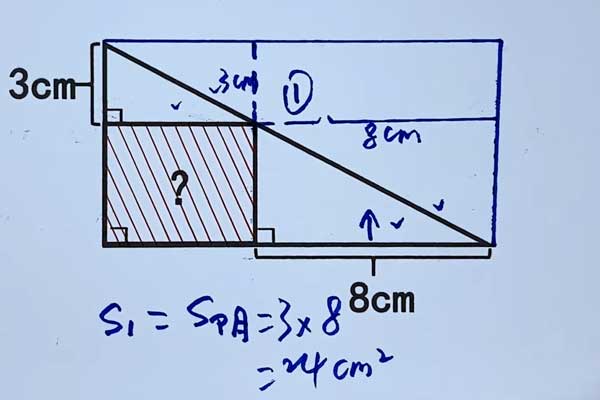 3cm
3cm
①
8cm
?
8cm
S₁ = S阴 = 3×8
= 24 cm²